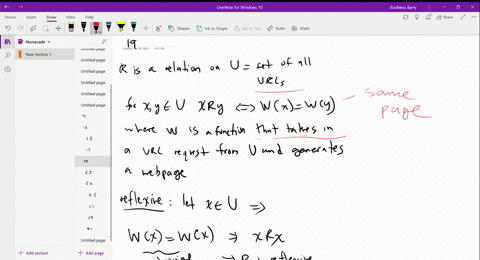 OneNote for Windows 10
Home Insert Draw View Help
Shapes
Ink to Shape
Ink to Text
Ruler
Math
Numerade
New Section 1
Untitled page
Untitled page
Untitled page
Untitled page
Untitled page
Untitled page
Add section
Add page
19
R is a relation on U = set of all
URLs
for x,y ∈ U xRy ⟺ W(x) = W(y) — same
page
where W is a function that takes in
a URL request from U and generates
a webpage
reflexive: let x ∈ U ⟹
W(x) = W(x) ⇒ xRx
R is reflexive